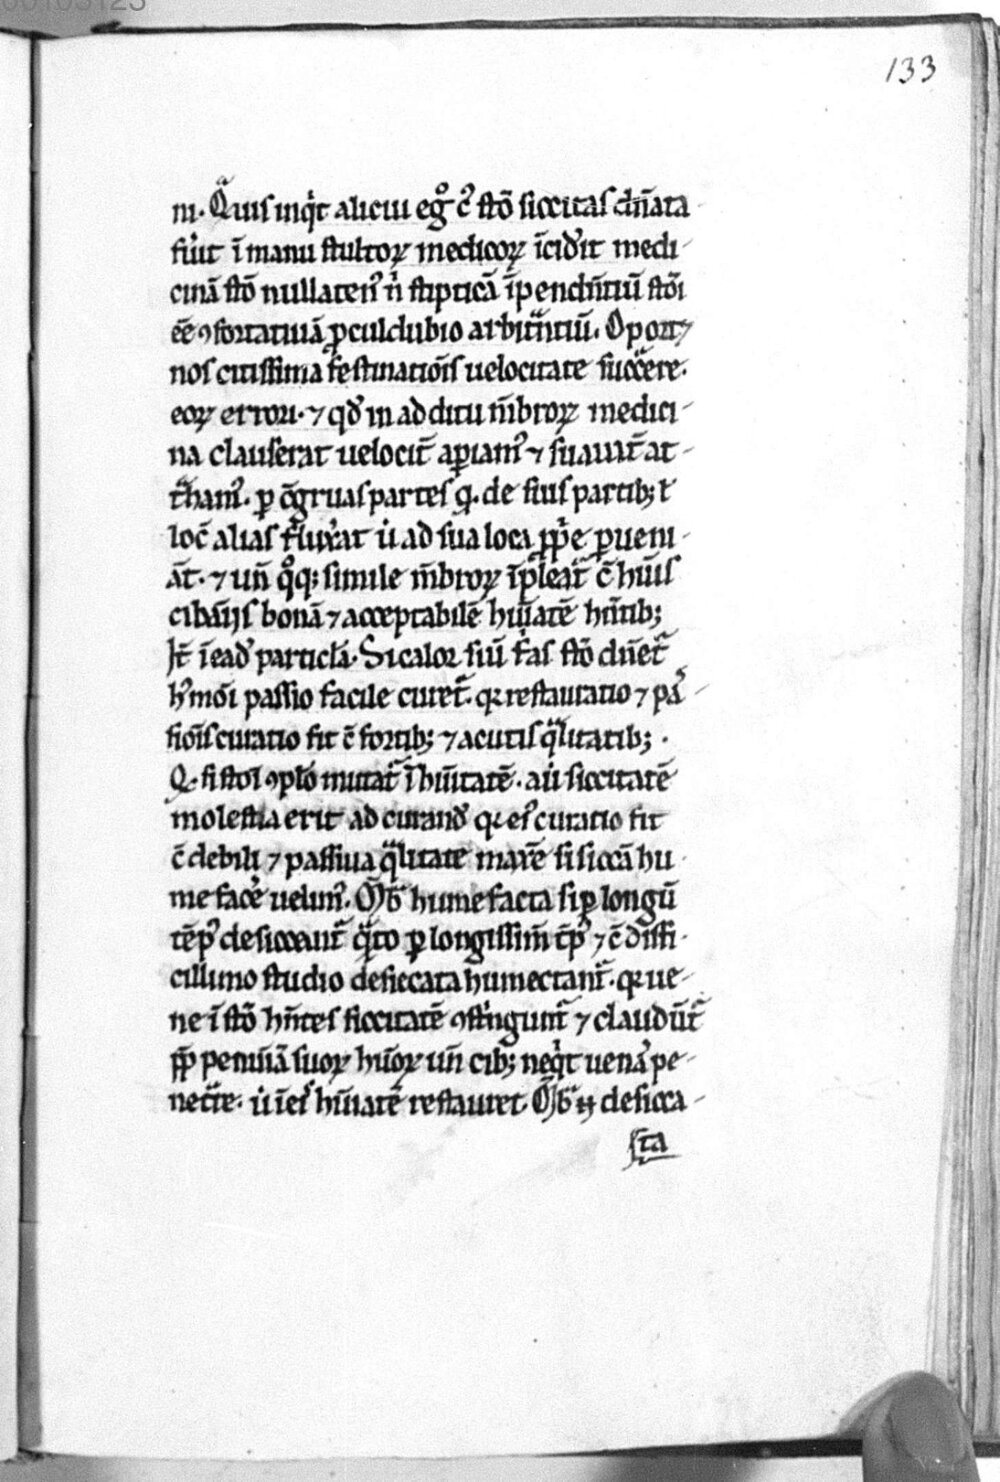 00105123
133
ni. Quis inqͥt alicui eg̊ c̾ stō siccitas dn̄ata
fūit ī manu stultoꝝ medicoꝝ īciđit medi-
cinā stō nullaten̾ n̄ stipticā īpendn̄tiū stōi
ēē ꝯfortatiuā ꝓculdubio arbitn̄tiū. Oport⁊
nos citissima festinatiōis uelocitate succ̄ere.
eoꝝ errori. ⁊ qđ in ad ditu m̄broꝝ medici-
na clauserat uelocit̄ aꝑiam̾ ⁊ suauit̄ at-
t̄ham̾. ꝑ ꝯgruas partes q̨. de suis partib; ł
loc̄ alias fluxͥat ů ad sua loca ꝓpͥe ꝑueni-
āt. ⁊ un̄ qͦq; simile m̄broꝝ īpleat̄ c̄ hūis
cibāijs bonā ⁊ acceptabilē hūiatē hn̄tib;
It̄ īeađ particłā. Si calor siū fͥas stō dn̄et̄
hͥmōi passio facile curet̄. q̨ restauratio ⁊ pa̾-
siōis curatio fit c̄ fortib; ⁊ acutis qͣlitatib; .
Q̨. si stoī ꝯplō mutat̄ ī hūitatē. aů siccitatē
molestia erit ad curanđ q̨ ei̾ curatio fit
c̄ debili ⁊ passiua qͣlitate maxē si siccā hu
me facē uelim̾. Mƀ hume facta si ꝑ longū
tēp̾ desiccant̄ qͣto ꝑ longissim̄ tp̄̾ ⁊ c̄ diffi-
cillimo studio desiccata humectant̄. q̨ ue-
ne ī stō hn̄tes siccitatē ꝯstͥngunt̄ ⁊ claudūt̄
ꝓp̄ penuͥiā suoꝝ hūoꝝ un̄ cib; neqͥt uena̾ pe-
net̄re. ů īei̾ hūitatē restauret. Mƀ ꝶ desicca-
sta